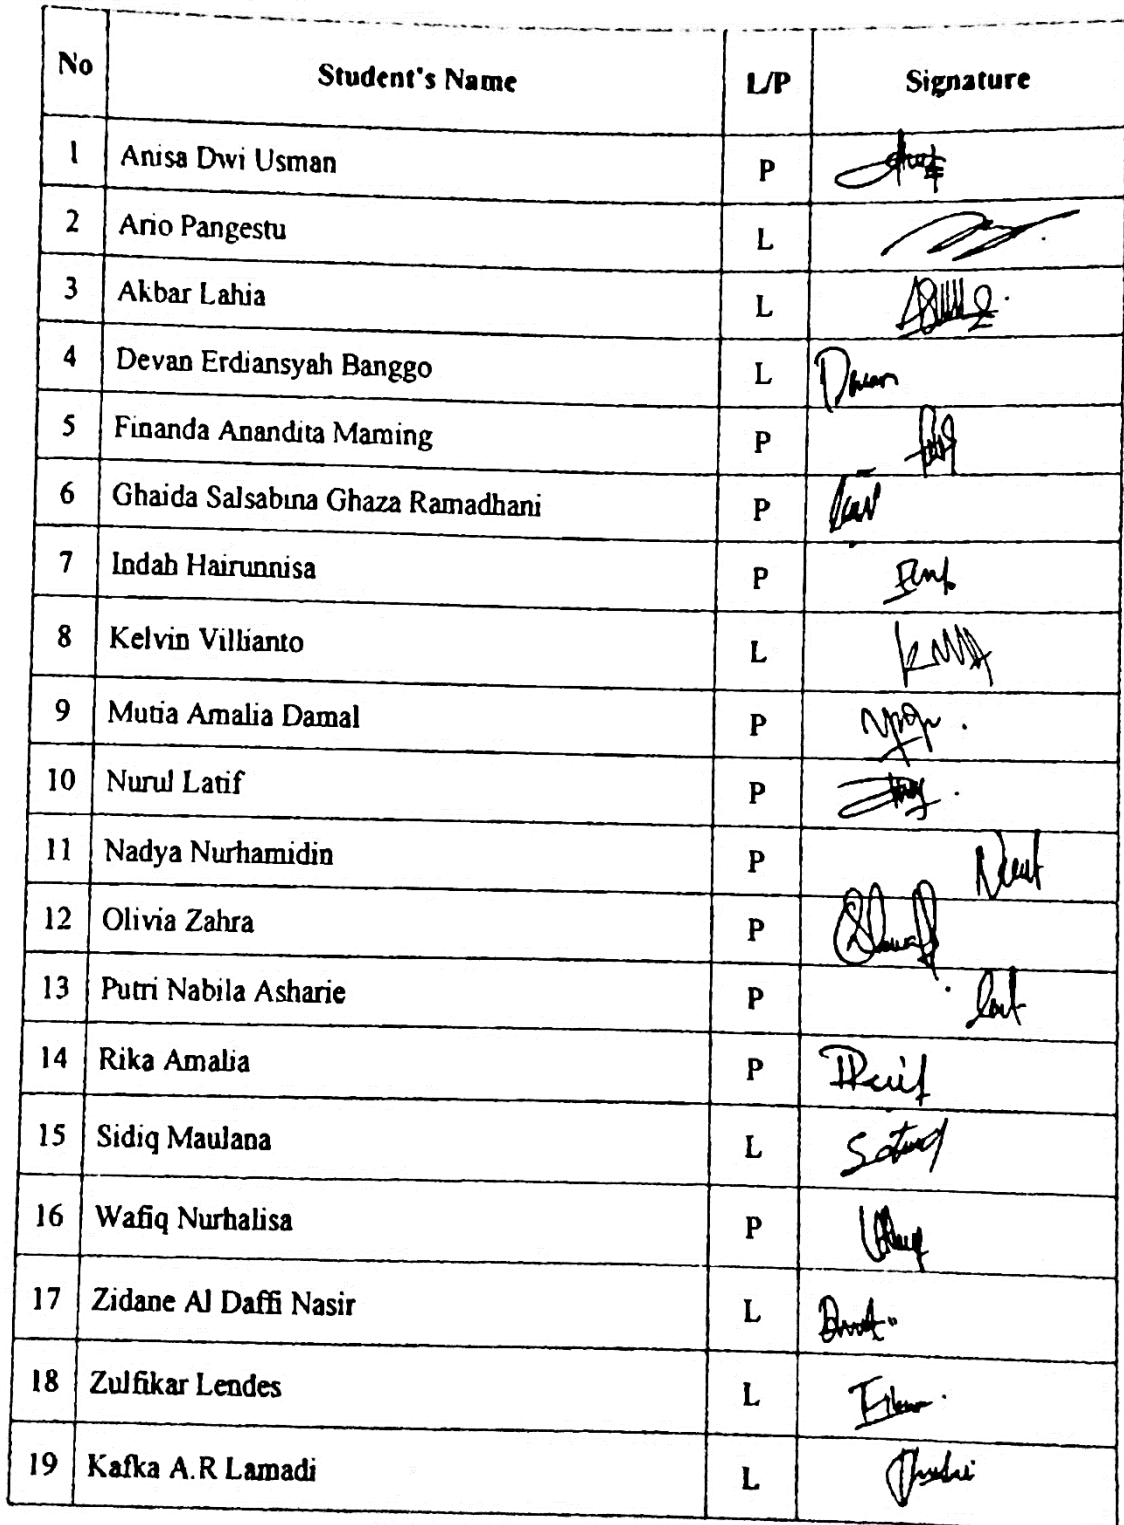 No Student's Name L/P Signature
1 Anisa Dwi Usman P
2 Ario Pangestu L
3 Akbar Lahia L
4 Devan Erdiansyah Banggo L
5 Finanda Anandita Maming P
6 Ghaida Salsabina Ghaza Ramadhani P
7 Indah Hairunnisa P
8 Kelvin Villianto L
9 Mutia Amalia Damal P
10 Nurul Latif P
11 Nadya Nurhamidin P
12 Olivia Zahra P
13 Putri Nabila Asharie P
14 Rika Amalia P
15 Sidiq Maulana L
16 Wafiq Nurhalisa P
17 Zidane Al Daffi Nasir L
18 Zulfikar Lendes L
19 Kafka A.R Lamadi L